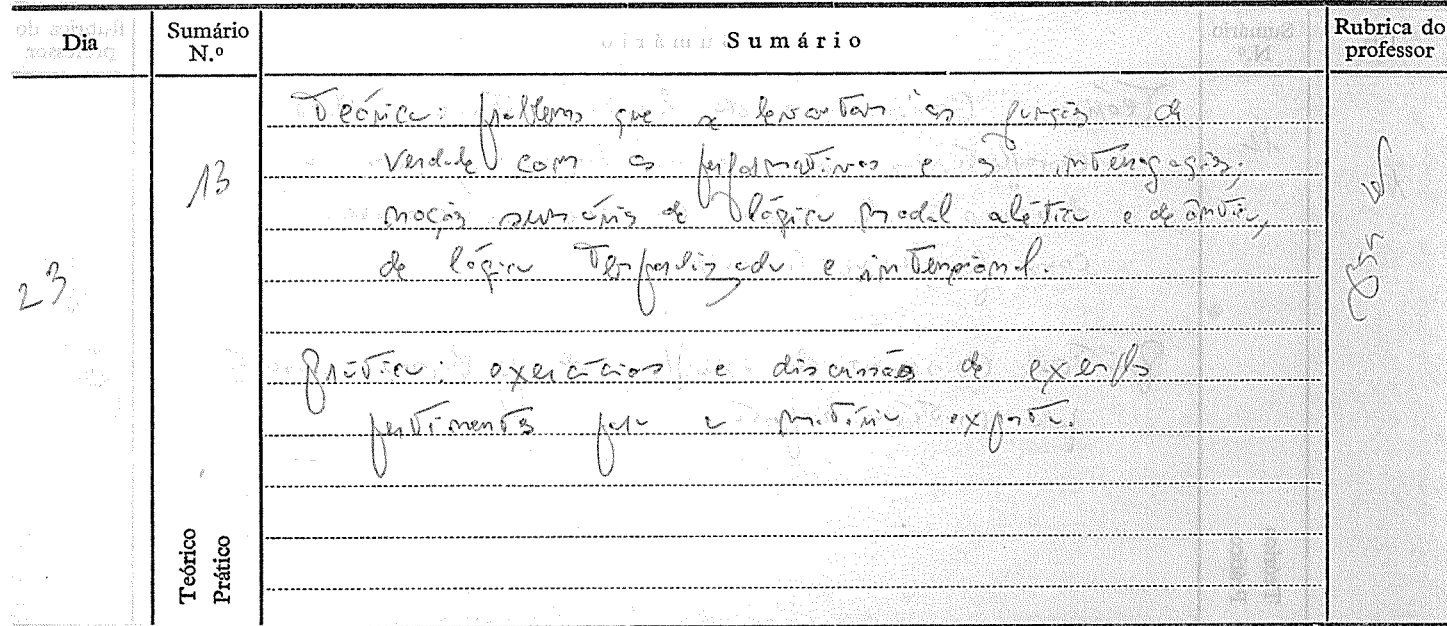 Dia
Sumário N.º
Sumário
Rubrica do professor
23
13
Teórica: problemas que se levantam às funções de
verdade com os performativos e as interrogações;
noções sumárias de lógica modal alética e deôntica,
de lógica temporalizada e intensional.
Prática: exercícios e discussão de exemplos
pertinentes para a matéria exposta.
Teórico
Prático